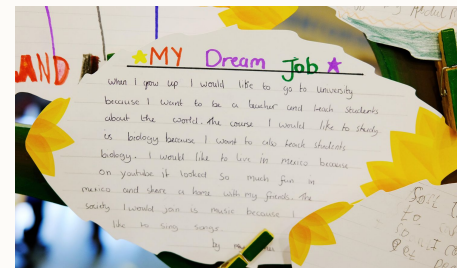 MY Dream Job
AND
when I grow up I would like to go to university
because I want to be a teacher and teach students
about the world. The course I would like to study
is biology because I want to also teach students
biology. I would like to live in mexico because
on youtube it looked so much fun in
mexico and share a home with my friends. The
society I would join is music because I
like to sing songs
by